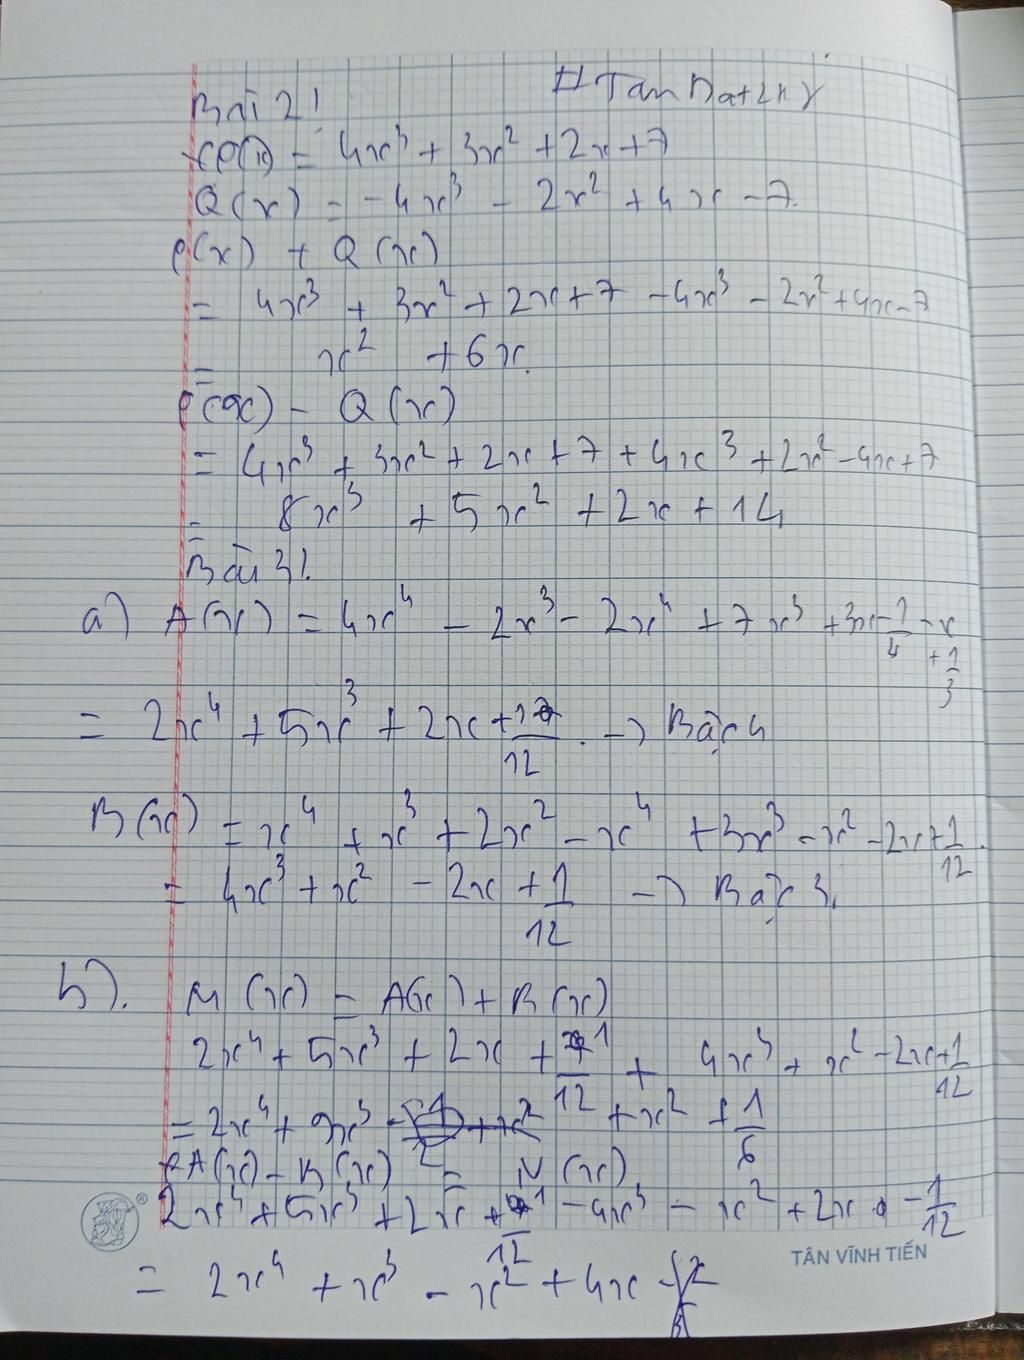 Bài 2:
P(x) = 4x³ + 3x² + 2x + 7
Q(x) = -4x³ - 2x² + 4x - 7.
P(x) + Q(x)
= 4x³ + 3x² + 2x + 7 - 4x³ - 2x² + 4x - 7
= x² + 6x.
P(x) - Q(x)
= 4x³ + 3x² + 2x + 7 + 4x³ + 2x² - 4x + 7
= 8x³ + 5x² + 2x + 14
Bài 3:
a) A(x) = 4x⁴ - 2x³ - 2x⁴ + 7x³ + 3x - 1/4 - x + 1/3
= 2x⁴ + 5x³ + 2x + 1/12. → Bậc 4
B(x) = x⁴ + x³ + 2x² - x⁴ + 3x³ - x² - 2x + 1/12.
= 4x³ + x² - 2x + 1/12 → Bậc 3.
b). M(x) = A(x) + B(x)
2x⁴ + 5x³ + 2x + 1/12 + 4x³ + x² - 2x + 1/12
= 2x⁴ + 9x³ + x² + 1/6
A(x) - B(x) = N(x)
2x⁴ + 5x³ + 2x + 1/12 - 4x³ - x² + 2x - 1/12
= 2x⁴ + x³ - x² + 4x
TÂN VĨNH TIẾN